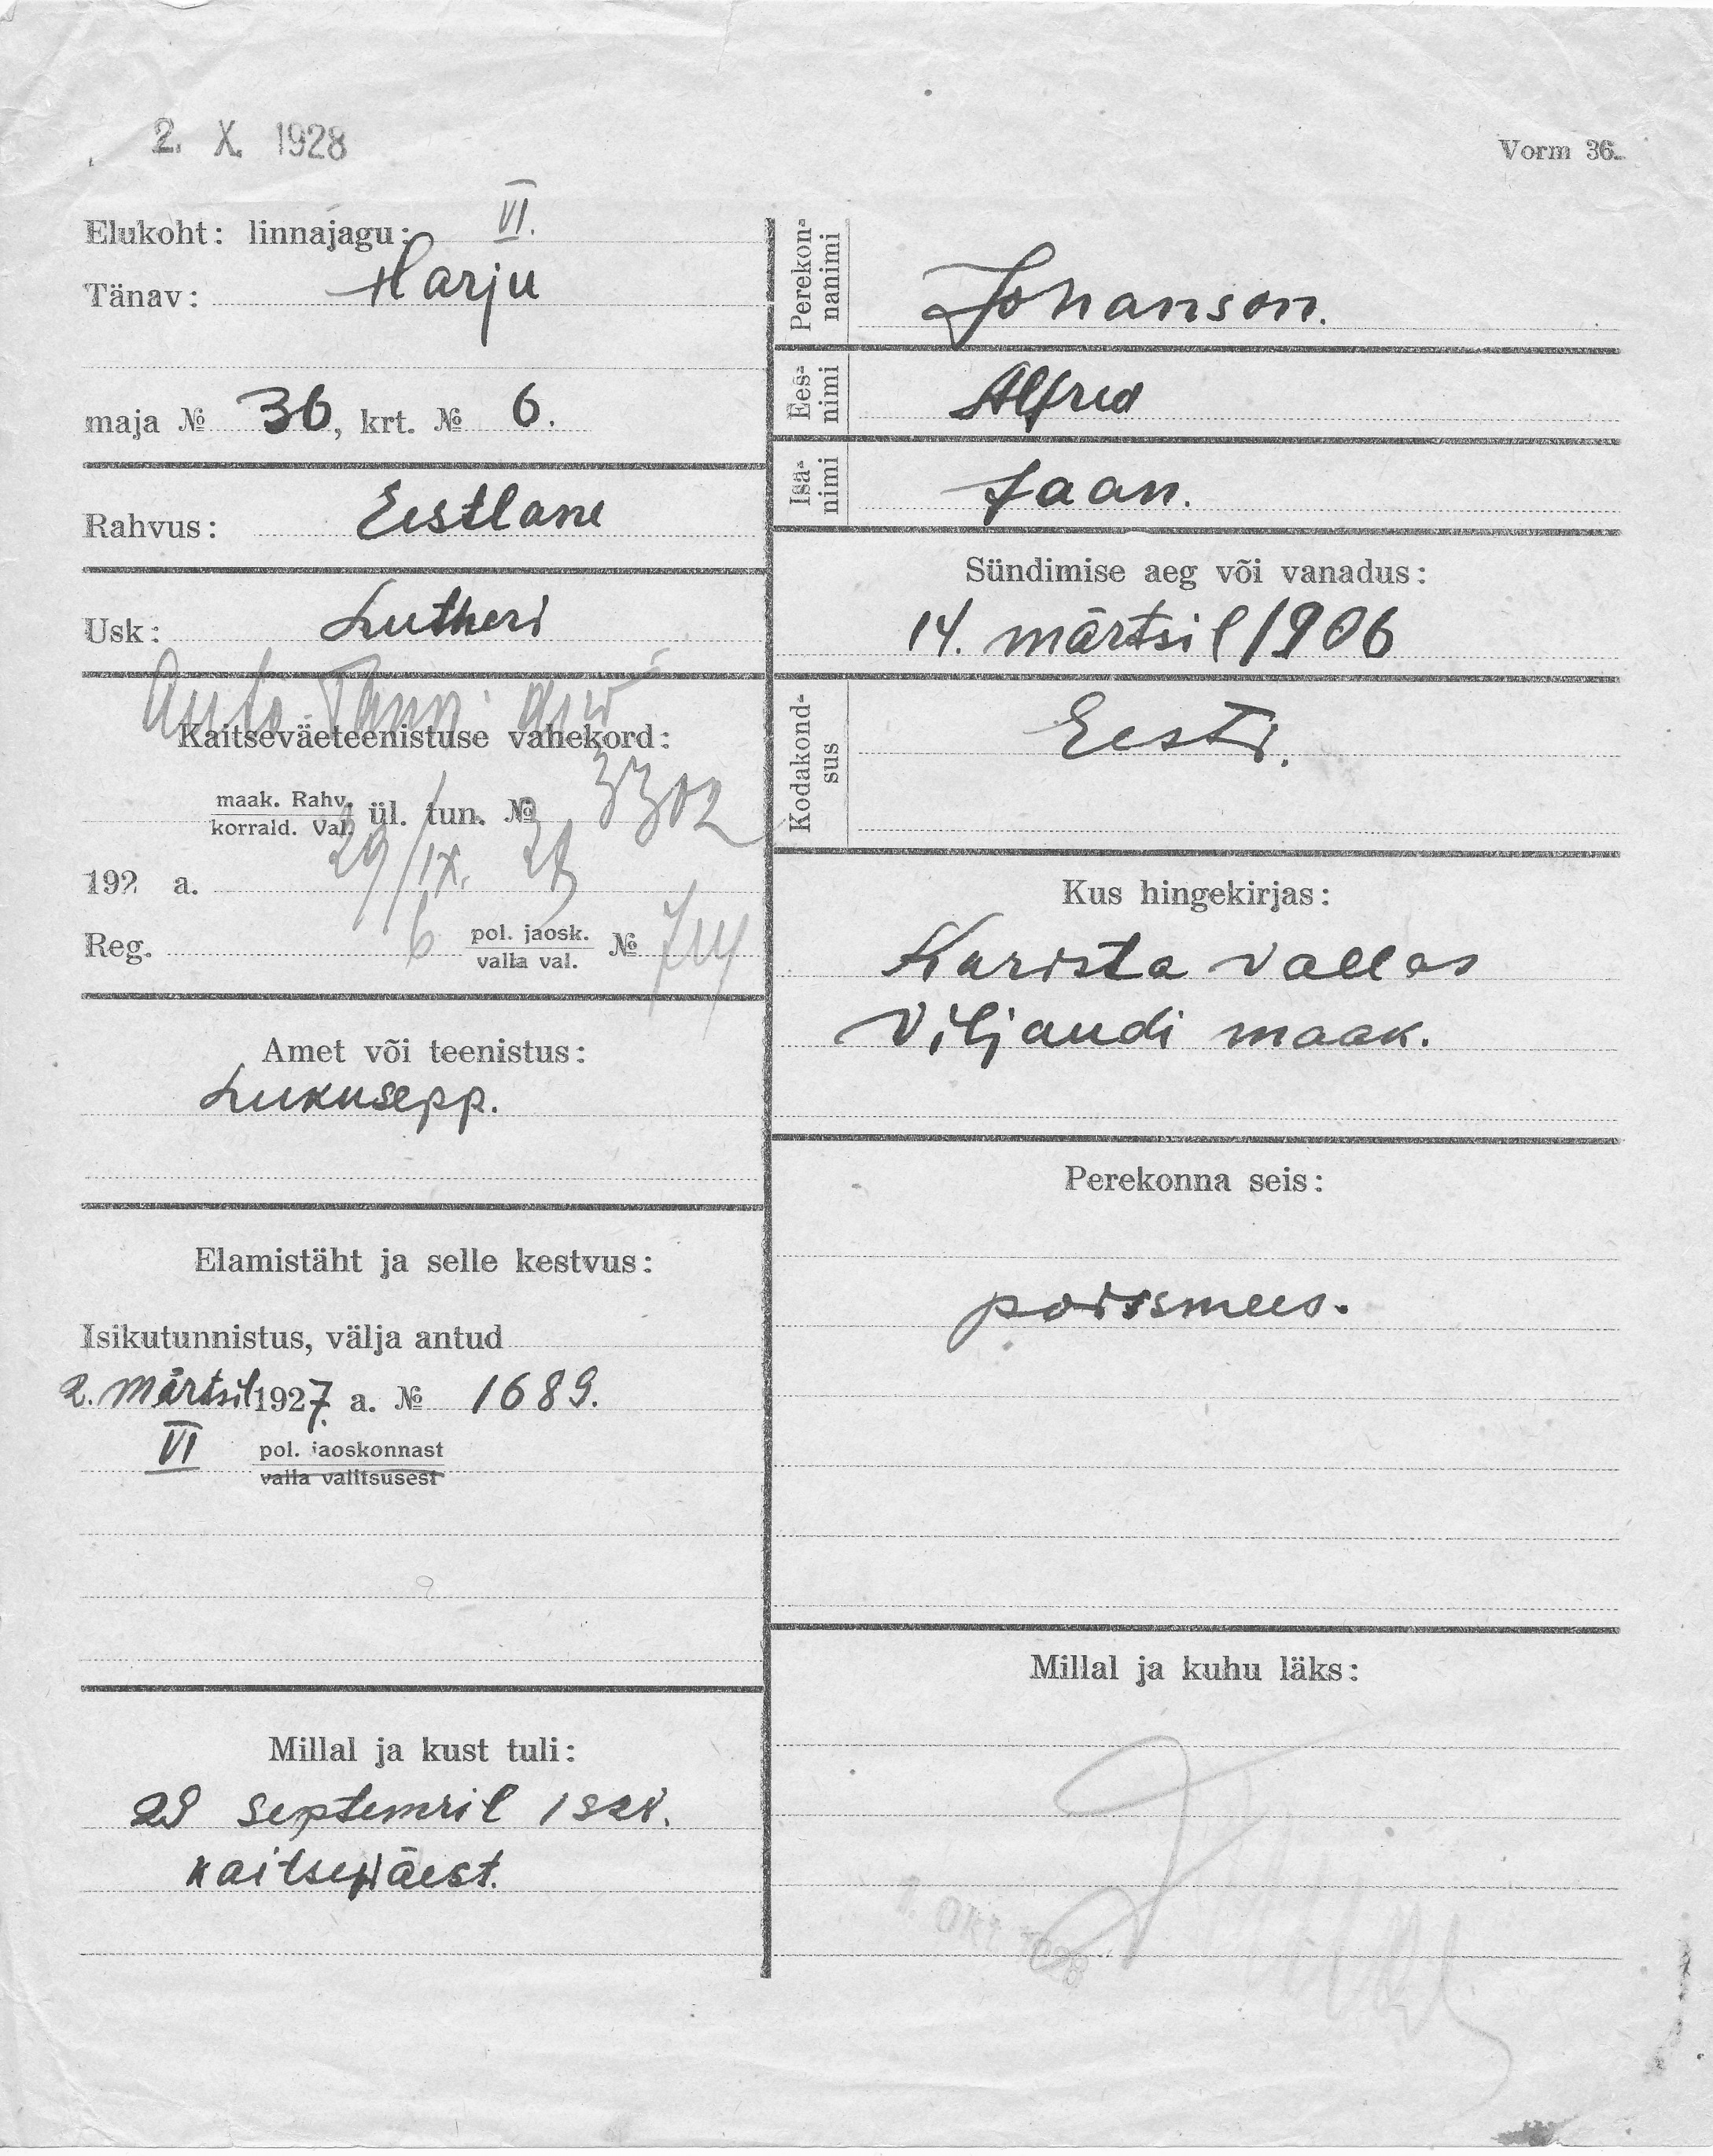 2. X. 1928
Vorm 36.
Elukoht: linnajagu: VI.
Tänav: Harju
maja № 36, krt. № 6.
Rahvus: Eestlane
Usk: Lutheri
Kaitseväeteenistuse vahekord:
maak. Rahv.
korrald. Val. ül. tun. № 3302
192 a. 29/IX. 28
Reg. 6 pol. jaosk.
valla val. № 714
Amet või teenistus:
Lukusepp.
Elamistäht ja selle kestvus:
Isikutunnistus, välja antud
2. märtsil 1927. a. № 1689.
VI pol. jaoskonnast
valla valitsusest
Millal ja kust tuli:
29 septemril 1928.
kaitseväest.
Perekon-
nanimi
Johanson.
Ees-
nimi
Alfred
Isa-
nimi
Jaan.
Sündimise aeg või vanadus:
14. märtsil 1906
Kodakond-
sus
Eesti.
Kus hingekirjas:
Karista vallas
Viljandi maak.
Perekonna seis:
poissmees.
Millal ja kuhu läks: